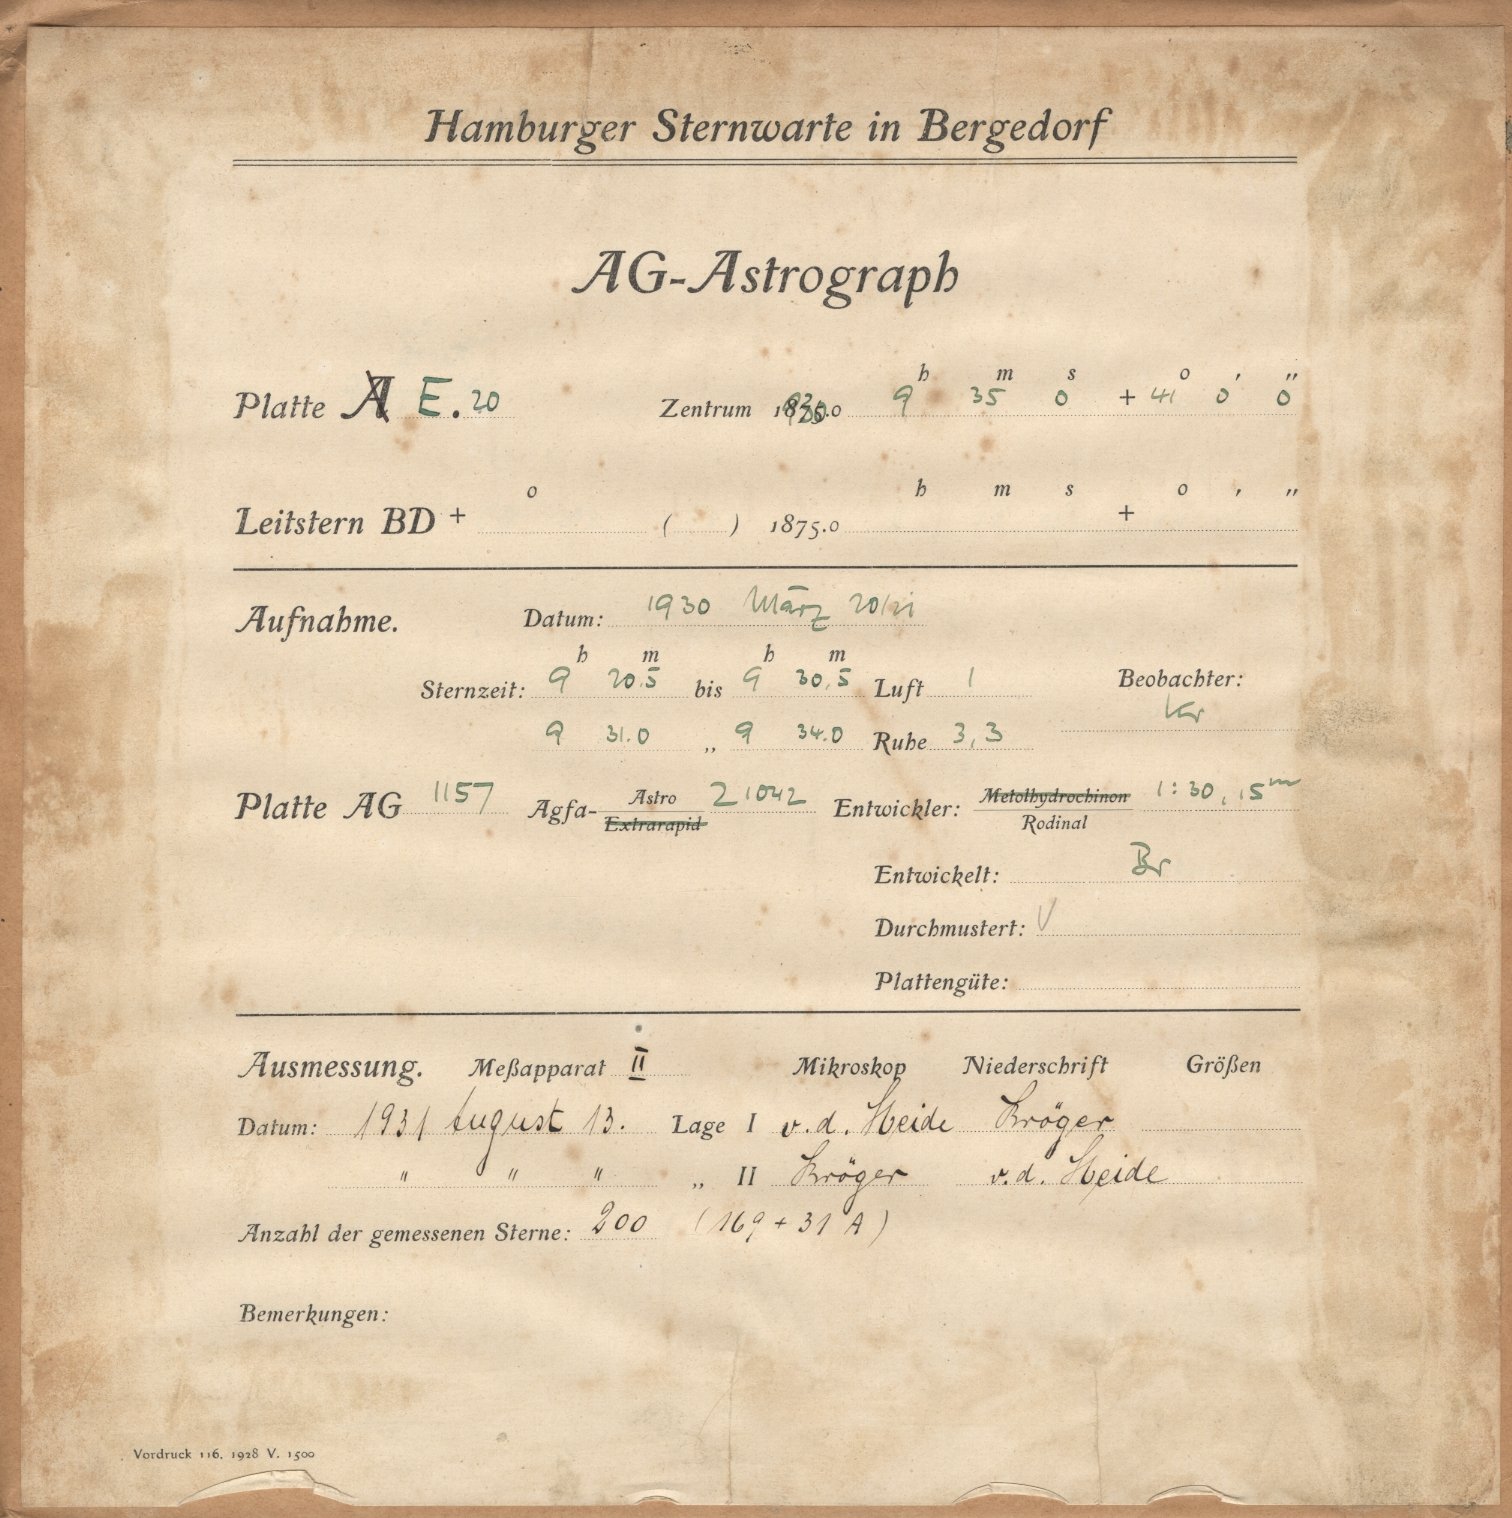 Hamburger Sternwarte in Bergedorf
AG-Astrograph
h m s o ′ ″
Platte A E.20 Zentrum 9 35 0 + 41 0 0
o h m s o ′ ″
Leitstern BD + ( ) 1875.0 +
Aufnahme. Datum: 1930 März 20/21
h m h m
Sternzeit: 9 20.5 bis 9 30.5 Luft 1 Beobachter:
Kr
9 31.0 „ 9 34.0 Ruhe 3,3
Platte AG 1157 Agfa- Astro 21042 Entwickler: Metolhydrochinon 1:30, 15m
Extrarapid Rodinal
Entwickelt: Br
Durchmustert: V
Plattengüte:
Ausmessung. Meßapparat II Mikroskop Niederschrift Größen
Datum: 1931 August 13. Lage I v.d. Heide Kröger
" " " „ II Kröger v.d. Heide
Anzahl der gemessenen Sterne: 200 (169 + 31 A)
Bemerkungen:
Vordruck 116. 1928 V. 1500